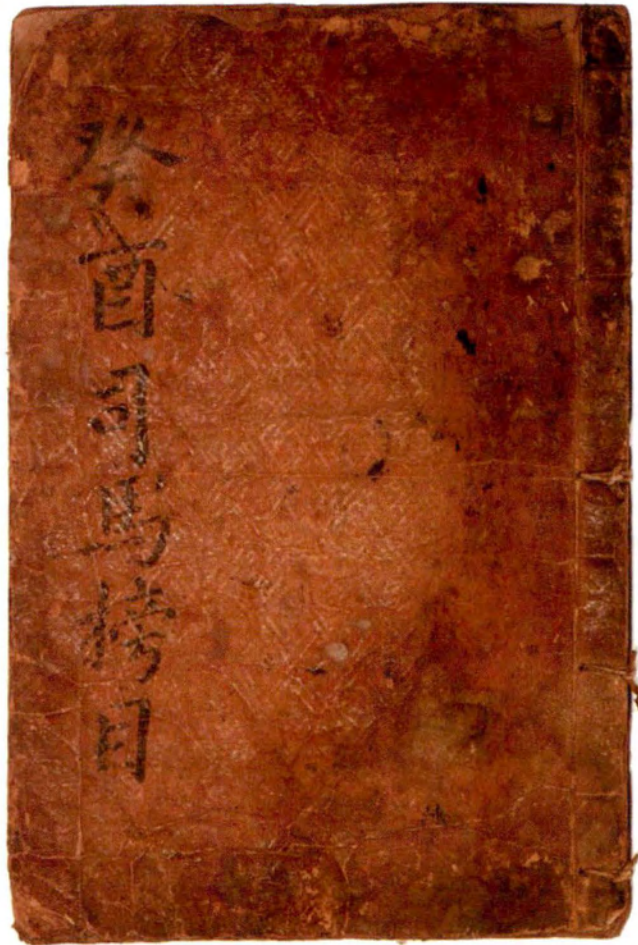 癸酉司馬榜目